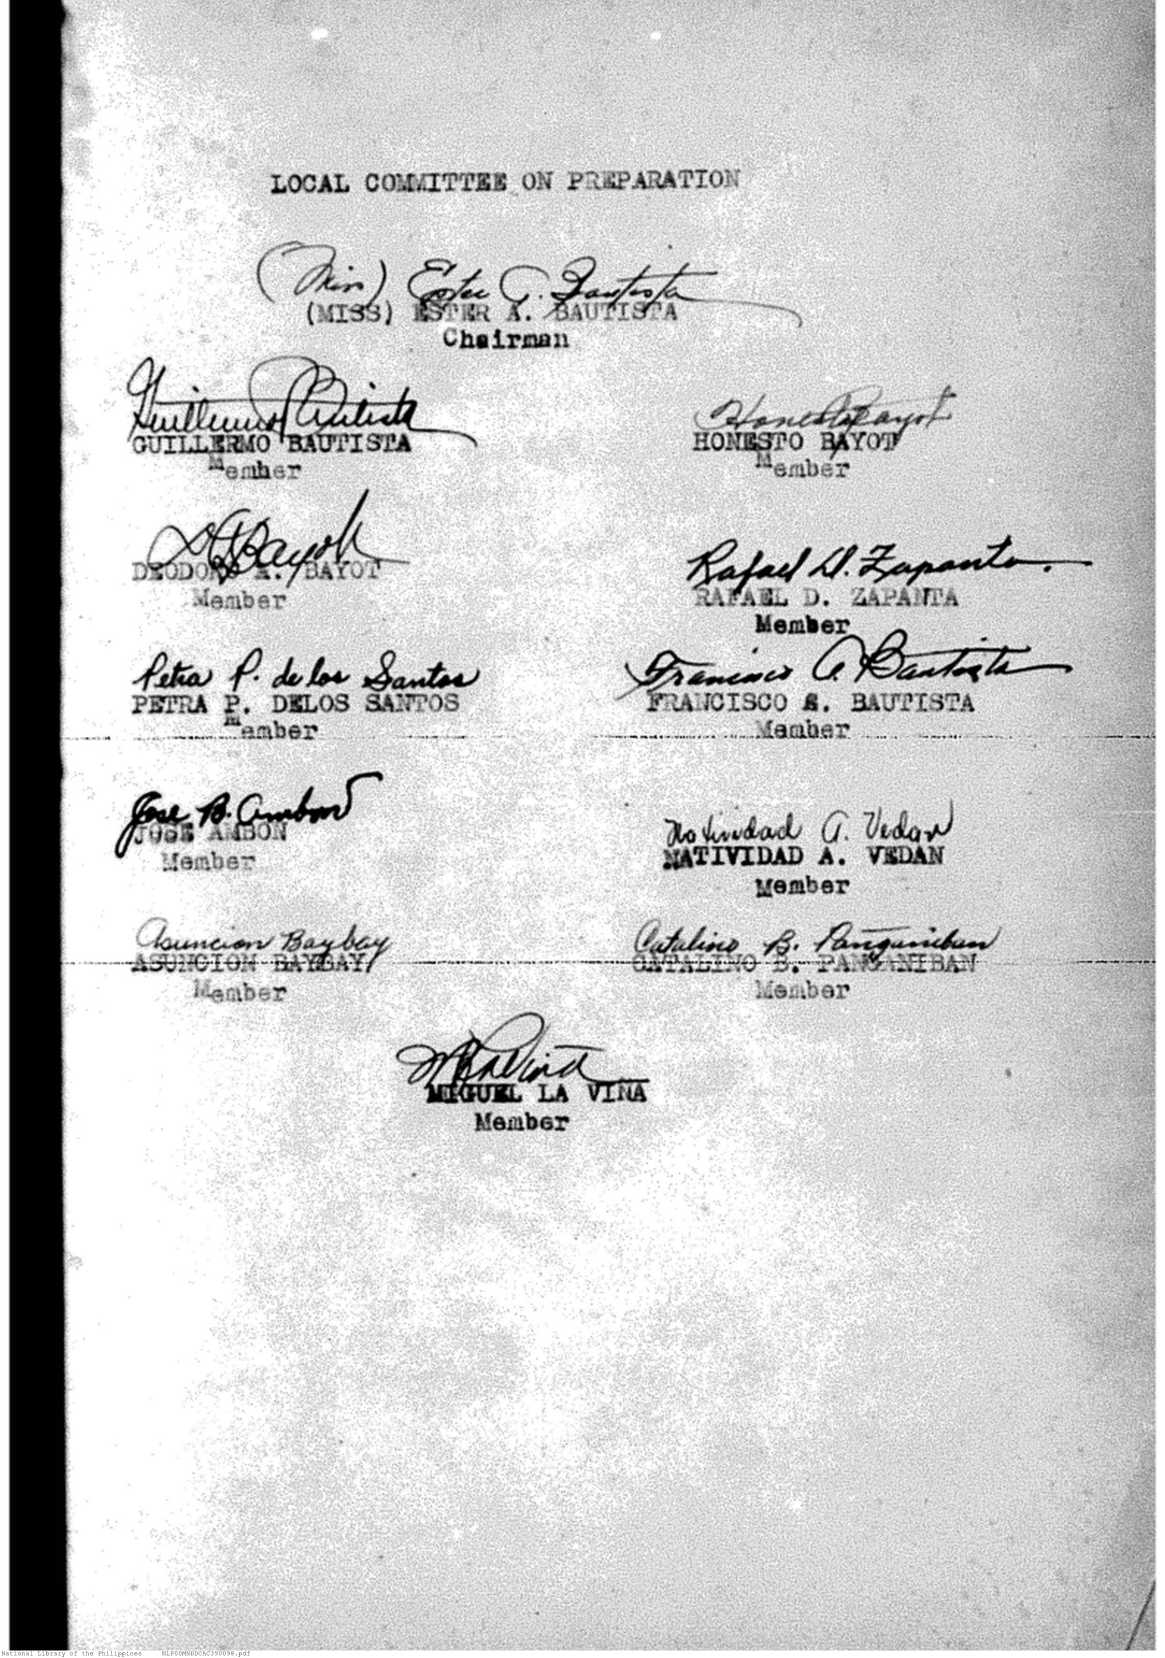 LOCAL COMMITTEE ON PREPARATION
(Miss) Ester A. Bautista
(MISS) ESTER A. BAUTISTA
Chairman
Guillermo Bautista
GUILLERMO BAUTISTA
Member
Honesto Bayot
HONESTO BAYOT
Member
D A Bayot
DEODORO A. BAYOT
Member
Rafael D. Zapanta.
RAFAEL D. ZAPANTA
Member
Petra P. de los Santos
PETRA P. DELOS SANTOS
Member
Francisco A. Bautista
FRANCISCO A. BAUTISTA
Member
Jose B. Ambon
JOSE AMBON
Member
Natividad A. Vedan
NATIVIDAD A. VEDAN
Member
Asuncion Baybay
ASUNCION BAYBAY
Member
Catalino B. Panganiban
CATALINO B. PANGANIBAN
Member
M La Viña
MIGUEL LA VIÑA
Member
National Library of the Philippines